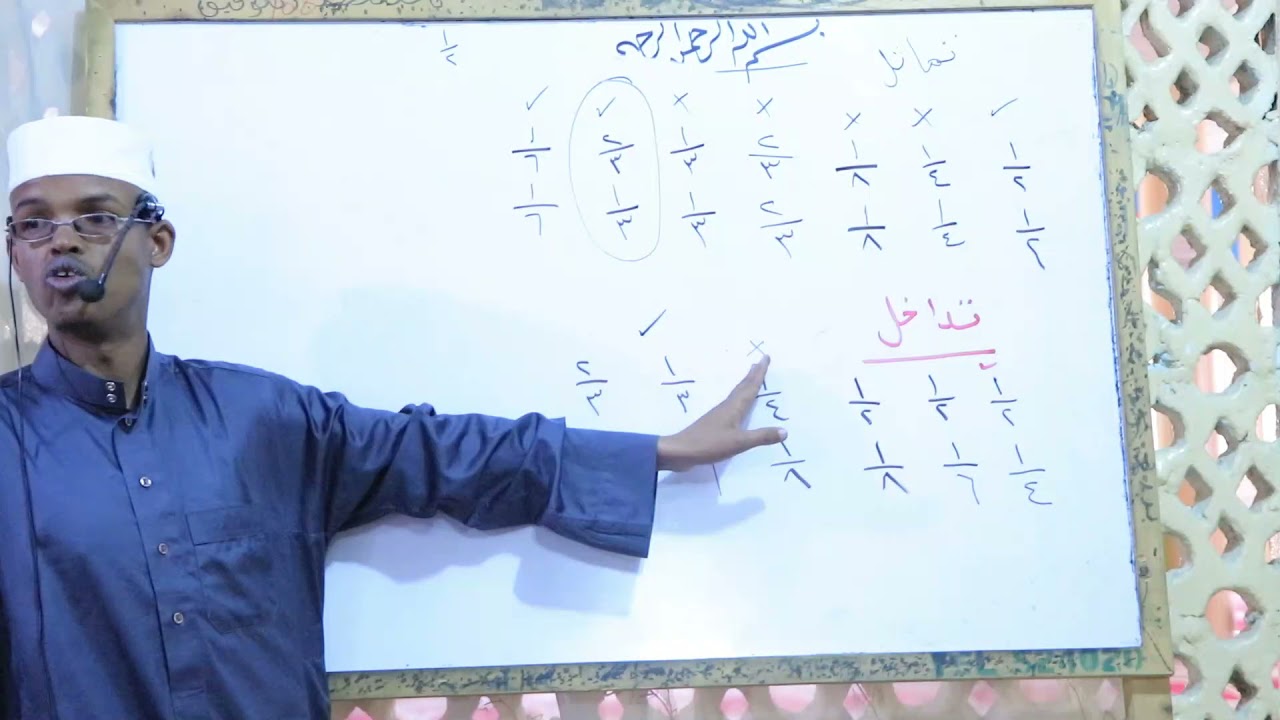 بسم الله الرحمن الرحيم
١/٢
تماثل
✓ × × × × ✓ ✓
١/٢ ١/٤ ١/٨ ٢/٣ ١/٣ ٢/٣ ١/٦
١/٢ ١/٤ ١/٨ ٢/٣ ١/٣ ١/٣ ١/٦
تداخل
× ✓
١/٢ ١/٢ ١/٢ ١/٤ ١/٣ ٢/٣
١/٤ ١/٦ ١/٨ ١/٨